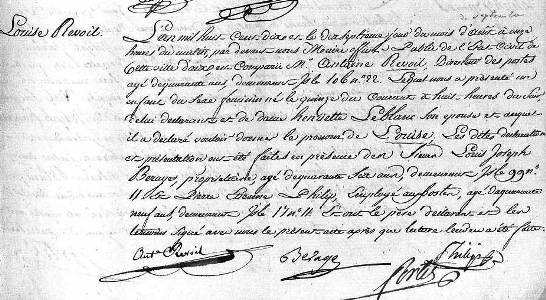 Louise Revoil.
L'an mil huit Cent dix et le dix septieme jour du mois d'aout à onze
heures du matin, par devant nous Maire officier Public de l'Etat Civil de
Cette ville d'aix est Comparu Mr. Antoine Revoil, Directeur des postes
agé de quarante ans demeurant Isle 106 nº 22. Lequel nous a présenté un
enfant du Sexe feminin né le quinze du Courant à huit heures du Soir,
de lui declarant et de dame henriette Leblanc Son epouse et auquel
il a declaré vouloir donner le prenom de Louise. Les dites declaration
et présentation ont été faites en présence de Jean Louis Joseph
Beraye, propriétaire, agé de quarante Six ans, demeurant Isle 99 nº
11 et Pierre Philip, Employé aux postes, agé de quarante
neuf ans demeurant Isle 17 nº 14 et ont le père declarant et les
temoins signé avec nous le présent acte après que lecture leur en a été faite.
Ante Revoil
Beraye
Philip